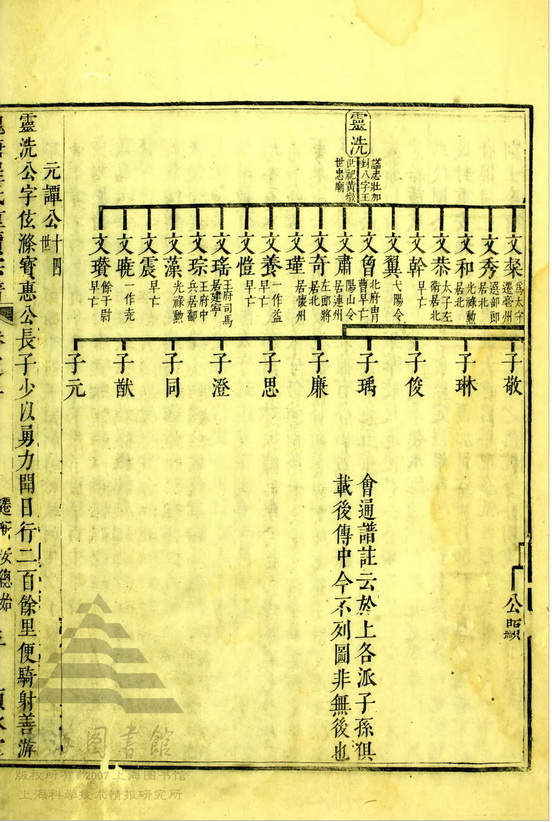 靈洗
謚忠壯加
封八字王
世祀黃墩
世忠廟
文秀
居北
文和
光祿勲
居北
文恭
太子左
衛居北
文幹
早亡
文翼
弋陽令
文曾
北府冑
曹早亡
文肅
陽山令
居連州
文奇
左郎將
居北
文瑾
居儀州
文養
一作益
早亡
文愷
早亡
文瑤
王府司馬
居建寧
文琮
王府中
兵居鄱
文藻
光祿勲
文震
早亡
文曉
一作尭
餘干尉
早亡
子敬
子琳
子俊
子瑀
子廉
子思
子澄
子同
子猷
子元
會通譜註云於上各派子孫俱
載後傳中今不列圖非無後也
公
元譚公十四
世
靈洗公字伭滌寳惠公長子少以勇力聞日行二百餘里便騎射善游
上海图书馆
版权所有©2007上海图书馆
上海科学技术情报研究所